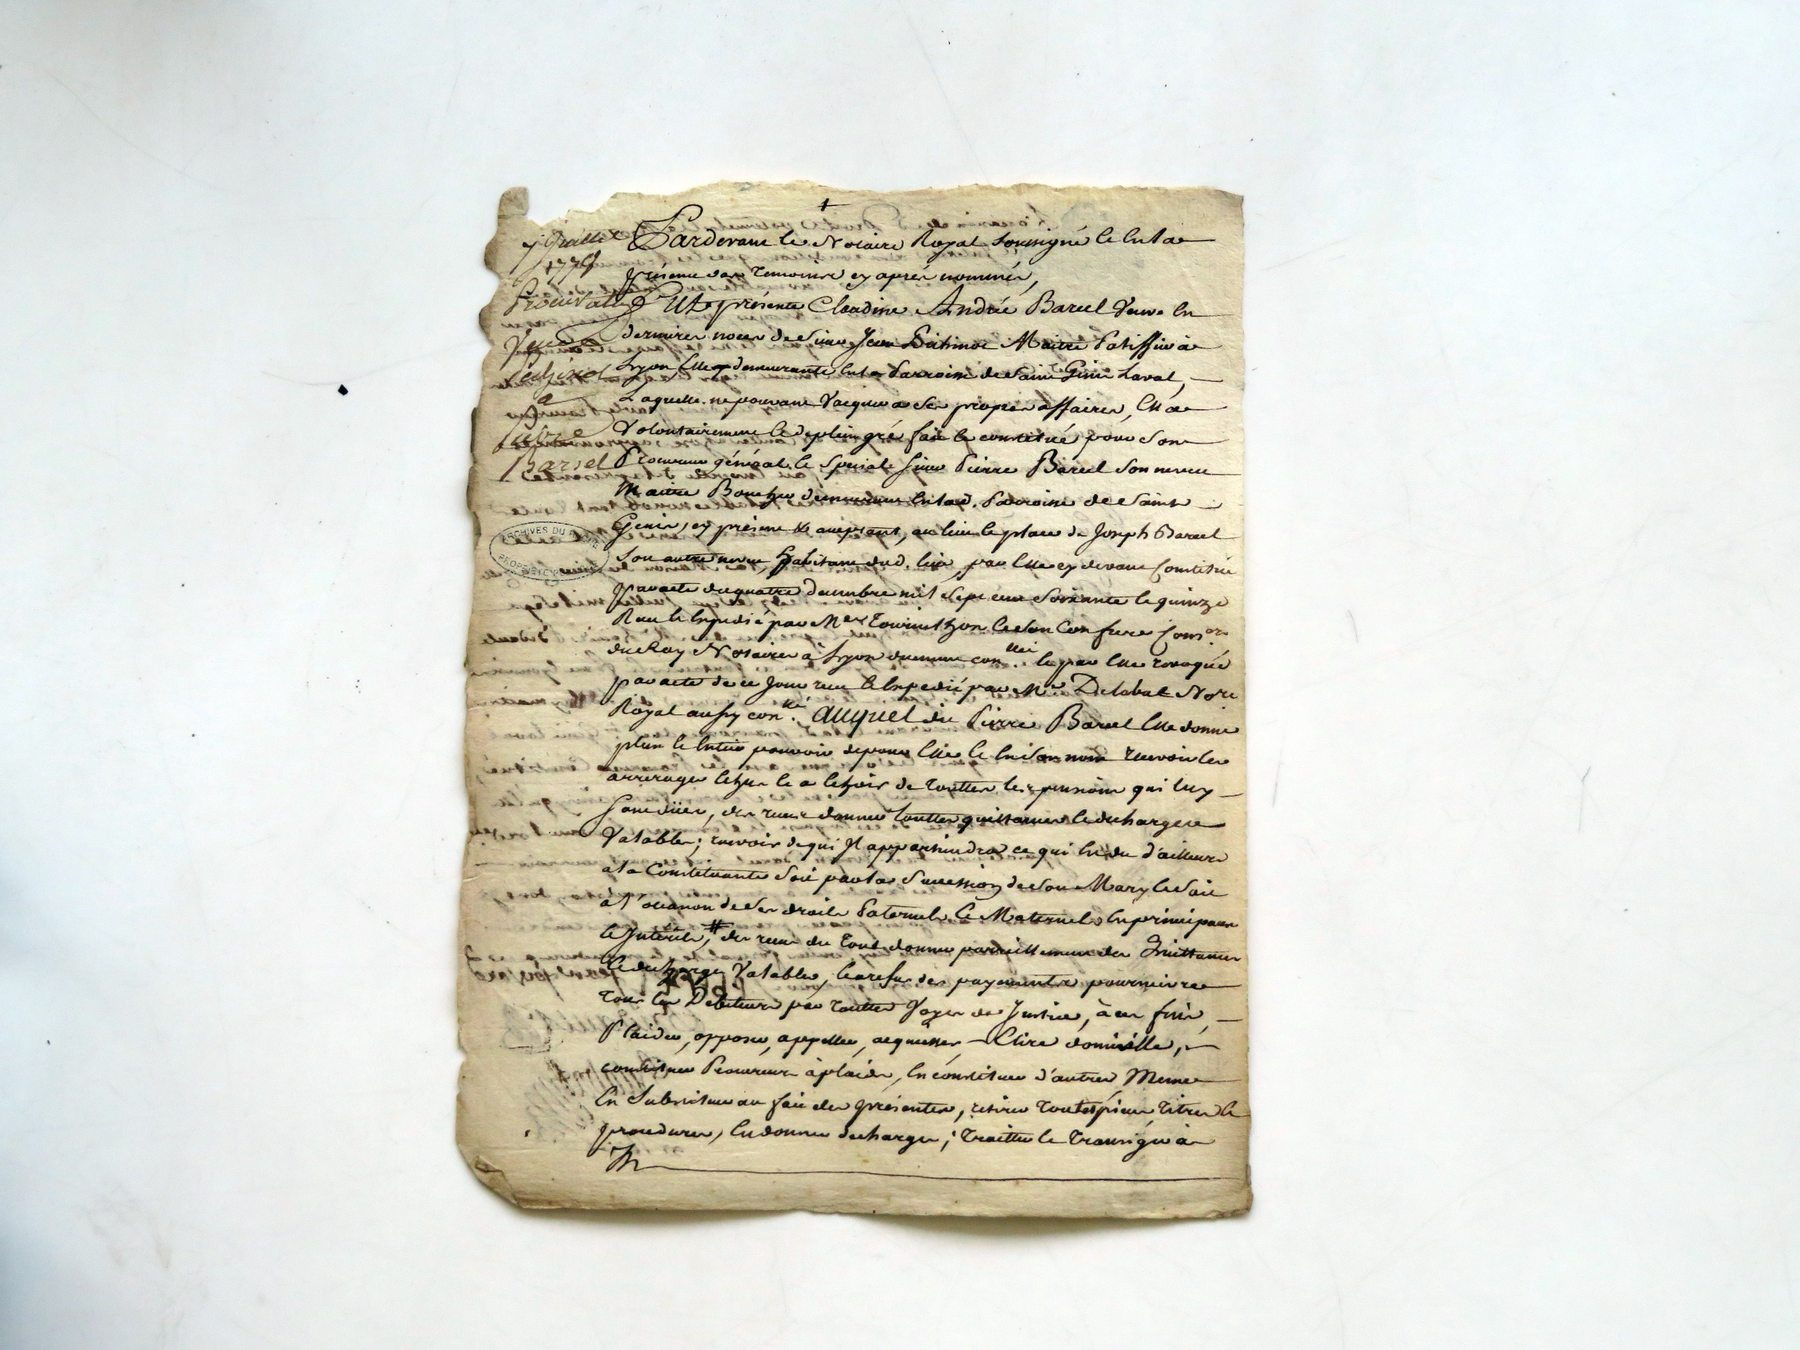 Pardevant le Notaire Royal soussigné et en la
présence des temoins cy après nommés,
fut présente Claudine Andrée Barcel veuve en
dernieres noces de sieur Jean Maitre Patissier à
Lyon elle demeurante en la Parroisse de Saint Genis Laval,
Laquelle ne pouvant vacquer a ses propres affaires, Elle a
volontairement et de plein gré fait et constitué pour son
Procureur général et special sieur Pierre Barcel son neveu
Maitre Boucher demeurant en lad. Parroisse de Saint
Genis, cy présent & acceptant, au lieu et place de Joseph Barcel
son autre neveu habitant dud. lieu, par elle cy devant constitué
par acte du quatre decembre mil sept cent soixante et quinze
Reçu et Expedié par Mes et son Confrere Coners
du Roy Notaires à Lyon duement conllé et par elle revoqué
par acte de ce jour reçu et Expedié par Me Delabal Nore
Royal aussy conllé. auquel dit Pierre Barcel elle donne
plein et entier pouvoir de pour elle et en son nom recevoir les
arrerages echus et a echoir de touttes les pensions qui luy
sont düës, des reçus donner touttes quittances et decharges
valables; recevoir de qui Il appartiendra ce qui est du d'ailleurs
a la Constituante soit par la succession de son Mary et soit
à l'occasion de ses droits Paternels et Maternels en principaux
et Interêts, # des reçus du tout donner pareillement des Quittances
et decharges valables, et a refus de payements poursuivre
tous les Debiteurs par touttes voyes de Justice, à ces fins,
Plaider, opposer, appeller, acquiesser, Elire domicille,
constituer Procureur à plaider, en constituer d'autres Meme
en Substituer au fait des présentes, retirer toutes pieces, titres et
procedures, en donner decharges; traitter et transiger à
7 Juillet
1779
Procuration
Veuve
a
Pierre
Barcel
ARCHIVES DU
PROPRIÉTÉ